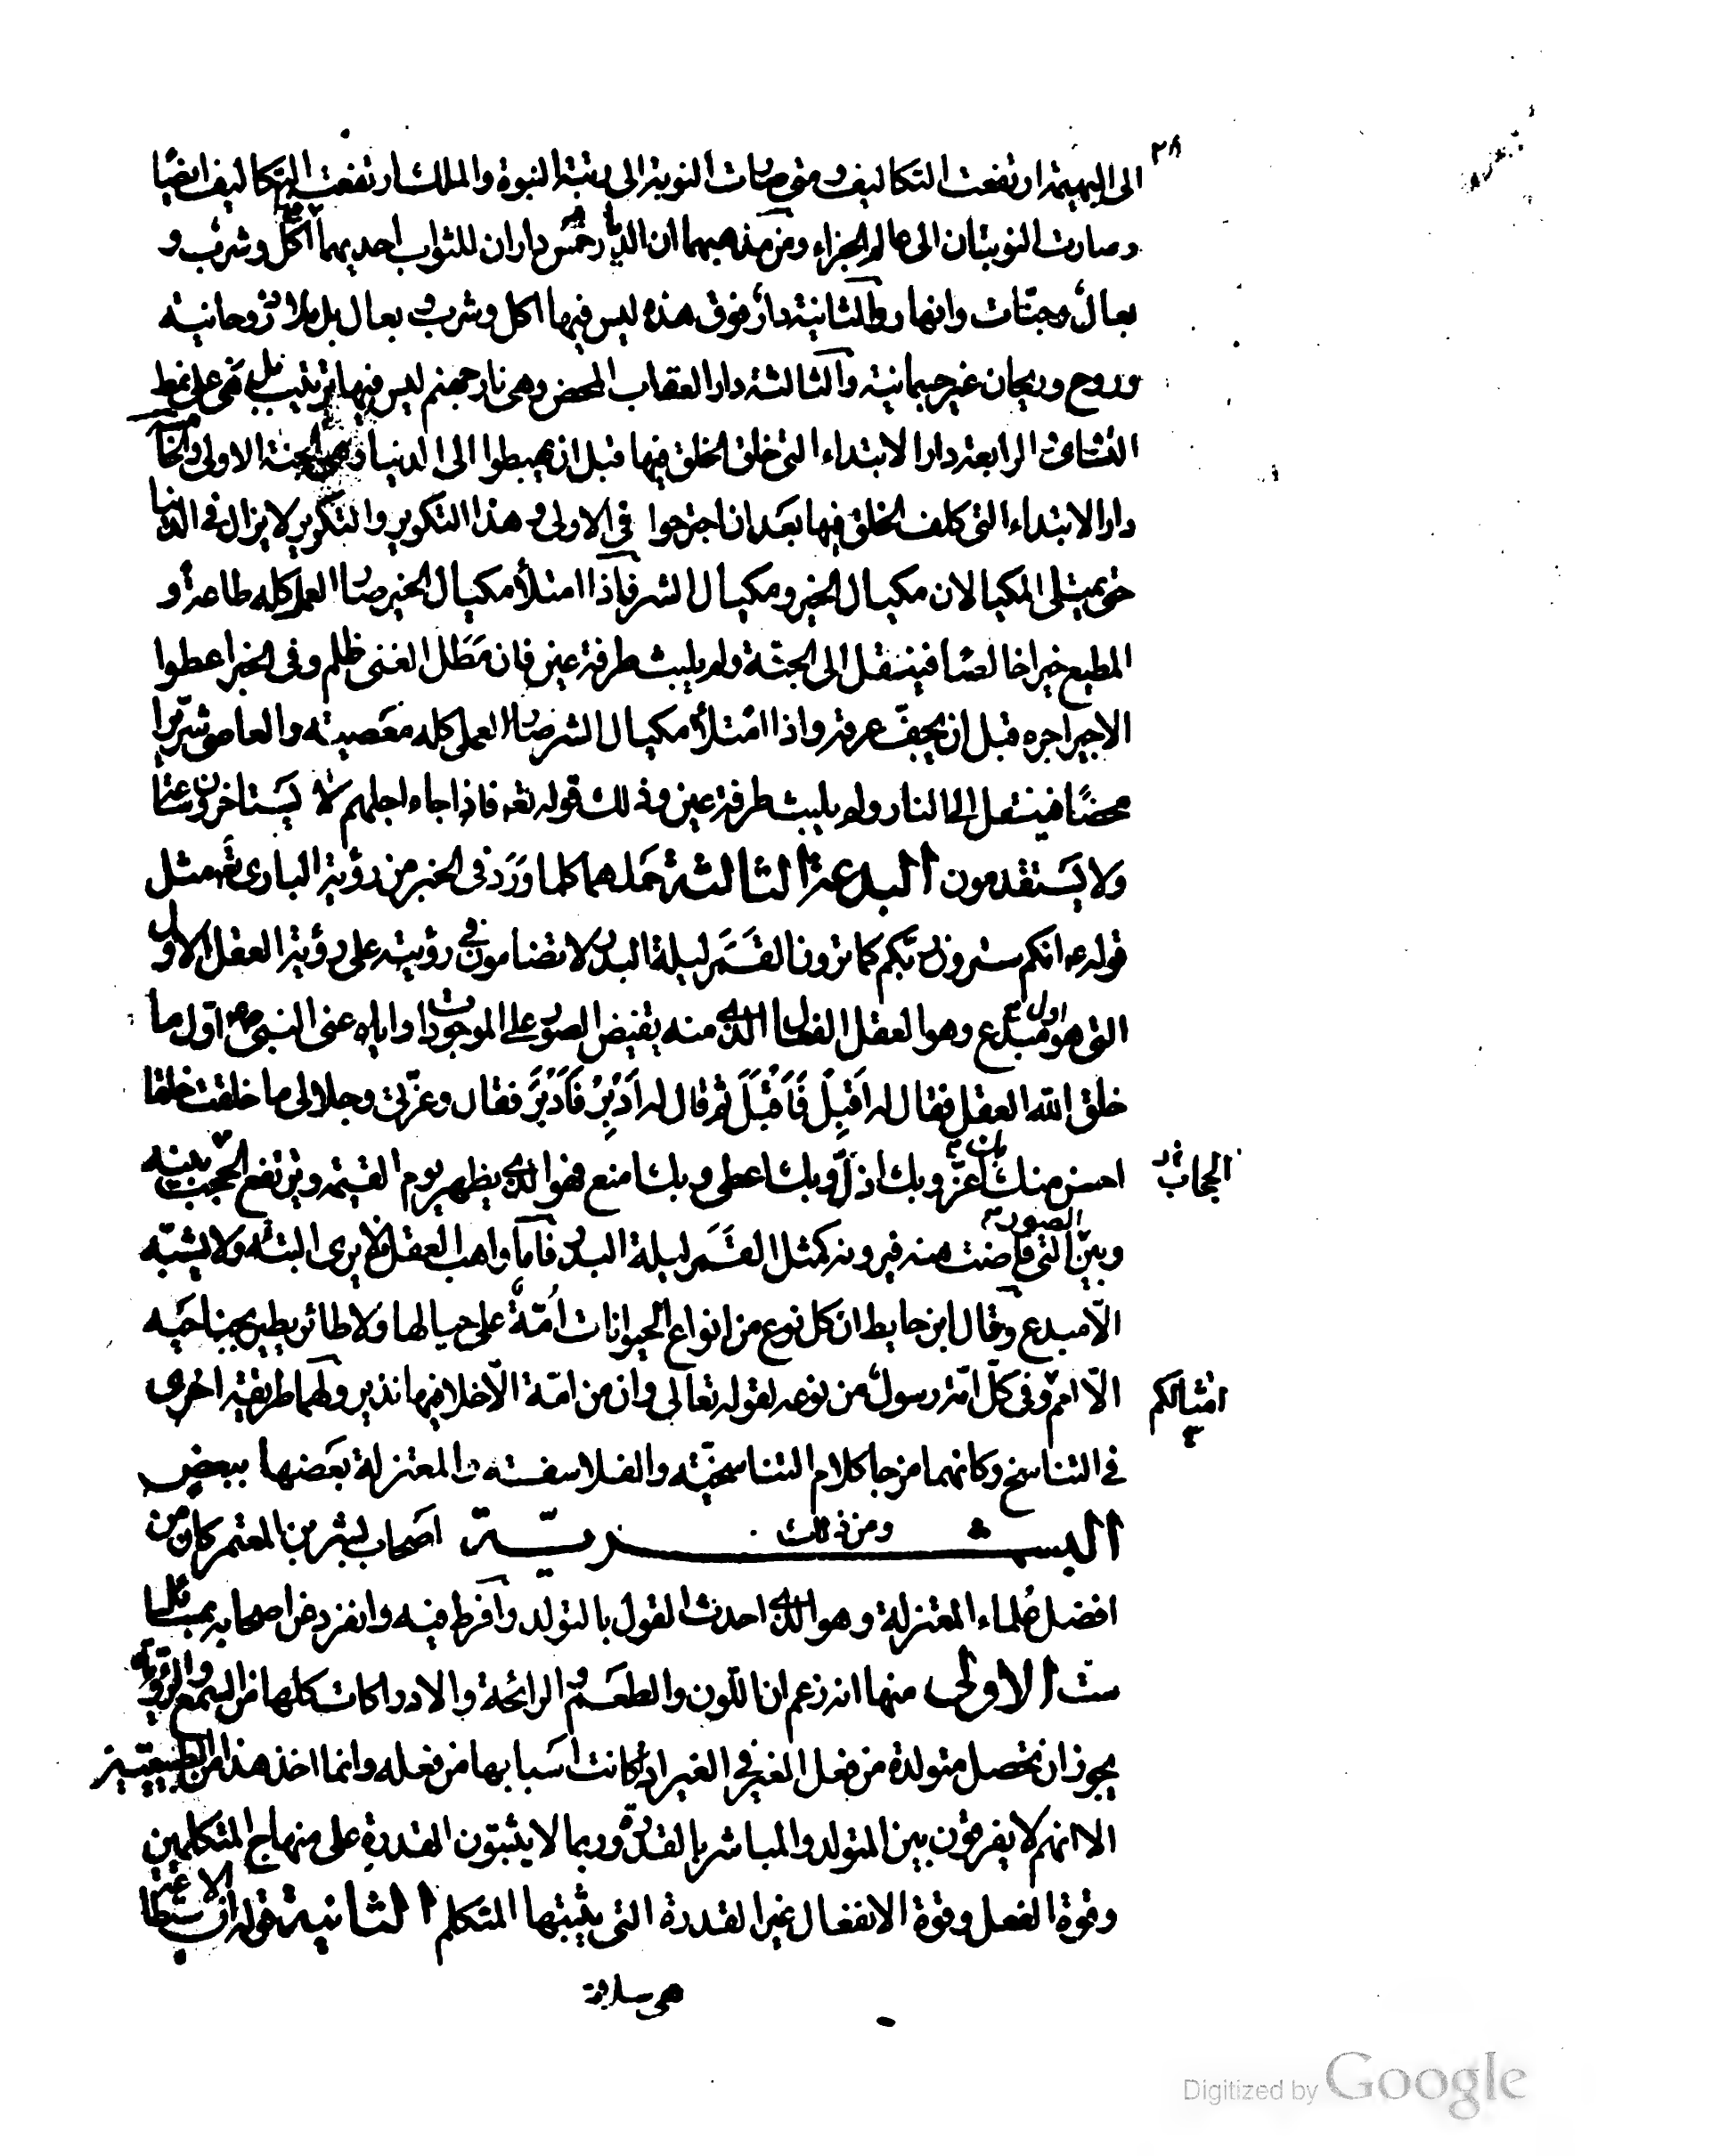 ٢٨
الى البهيمة ارتفعت التكاليف و متى صارت النوبة الى رتبة النبوة والملك ارتفعت التكاليف ايضًا
وصارت النوبتان الى عالم الجزاء ومن مذهبهما ان الديار خمس داران للثواب احديهما اكل وشرب و
بعال وجنّات وانهار والثانية دار فوق هذه ليس فيها اكل وشرب وبعال بل ملاذ روحانية
وروح وريحان غير جسمانية والثالثة دار العقاب المحض وهى نار جهنم ليس فيها ترتيب بل هى على نمط
التساوى الرابعة دار الابتداء التى خلق الخلق فيها قبل ان يهبطوا الى الدنيا وهى الجنة الاولى والخامسة
دار الابتداء التى كلف الخلق فيها بعد ان اجترحوا فى الاولى وهذا التكوير والتكرير لا يزال فى الدنيا
حتى يمتلى المكيالان مكيال الخير ومكيال الشر فاذا امتلأ مكيال الخير صار العمل كله طاعة و
المطيع خيرا خالصًا فينتقل الى الجنّة ولم يلبث طرفة عين فان مَطَل الغنى ظلم وفى الخبر اعطوا
الاجير اجره قبل ان يجفّ عرقه واذا امتلأ مكيال الشر صار العمل كله معصية والعاصى شرّيرا
محضًا فينتقل الى النار ولم يلبث طرفة عين وذلك قوله تعه فاذا جاء اجلهم لا يستاخرون ساعة
ولا يَستقدمون البدعة الثالثة حَملهما كلما وَرَدَ فى الخبر من رؤية البارى تعه مثل
قوله عم انكم سترون ربّكم كما ترون القمَر ليلة البدر لا تضامون فى رؤيته على رؤية العقل الاول
التى هو اول مبدع وهو العقل الفعال الذى منه يفيض الصور على الموجودات واياه عنى النبى صعم اول ما
خلق الله العقل فقال له اَقبِل فَاَقبَلَ ثم قال له اَدبِر فَاَدبَرَ فقال وعزّتى وجلالى ما خلقت خلقا
احسن منك بك اعزّ وبك اذلّ وبك اعطى وبك امنع فهو الذى يظهر يوم القيمة ويرتفع الحجب بينه
الحجاب
وبين الصور التى فاضت منه فيرونه كمثل القمَر ليلة البدر فاما واهب العقل فلا يرى البتّه ولا يشبّه
الّا مبدع وقال ابن حايط ان كل نوع من انواع الحيوانات امّة على حيالها ولا طائر يطير بجناحَيه
الّا امم وفى كلّ امّة رسول من نوعه لقوله تعالى وان من امّة الّا خلا فيها نذير ولهما طريقة اخرى
امثالكم
فى التناسخ وكانهما مزجا كلام التناسخيّة والفلاسفة والمعتزلة بعَضها ببعض
ومن ذلك البشـريّة اصحاب بشر بن المعتمر كان من
افضل علماء المعتزلة وهو الذى احدث القول بالتولد وافرط فيه وانفرد عن اصحابه بمسائل
ستّ الاولى منها انه زعم ان اللون والطعَم والرائحة والادراكات كلها من السمع والرؤية
يجوز ان تحصل متولدة من فعل الغير فى الغير اذا كانت اسبابها من فعله وانما اخذ هذا من الطبيعيين
الا انهم لا يفرقون بين المتولد والمباشر بالقدرة وربما لا يثبتون القدرة على منهاج المتكلمين
وقوة الفعل وقوة الانفعال غير القدرة التى يثبتها المتكلم الثانية قوله ان الاستطاعة
هى سلامة
Digitized by Google